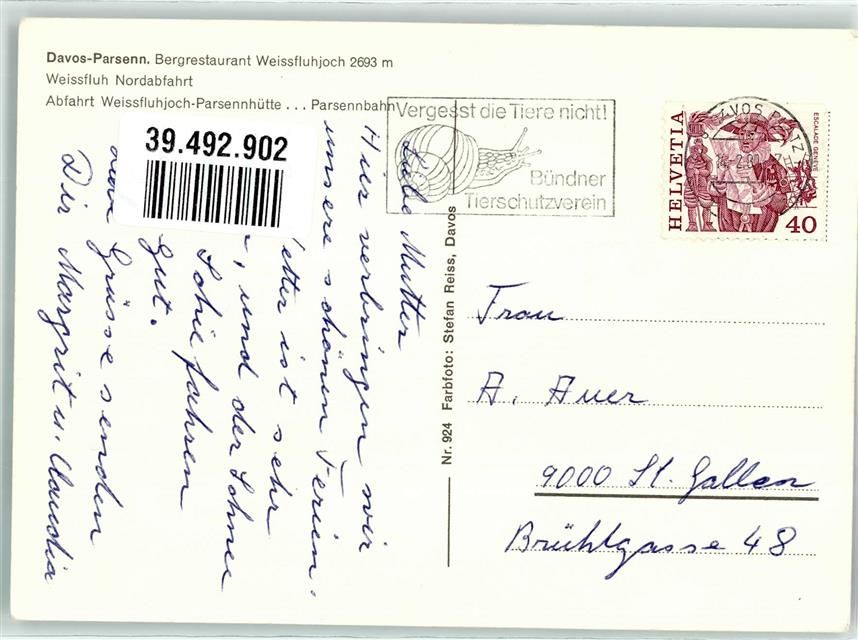 Davos-Parsenn. Bergrestaurant Weissfluhjoch 2693 m
Weissfluh Nordabfahrt
Abfahrt Weissfluhjoch-Parsennhütte . . . Parsennbahn
39.492.902
Vergesst die Tiere nicht!
Bündner
Tierschutzverein
DAVOS PLATZ
HELVETIA
ESCALADE GENÈVE
40
Liebe Mutter
Hier verbringen wir
unsere schönen Ferien.
etter ist sehr
, und der Schnee
Schie fahren
gut.
Grüsse senden
Dir Margrit u. Claudia
Nr. 924 Farbfoto: Stefan Reiss, Davos
Frau
A. Auer
9000 St. Gallen
Brühlgasse 48